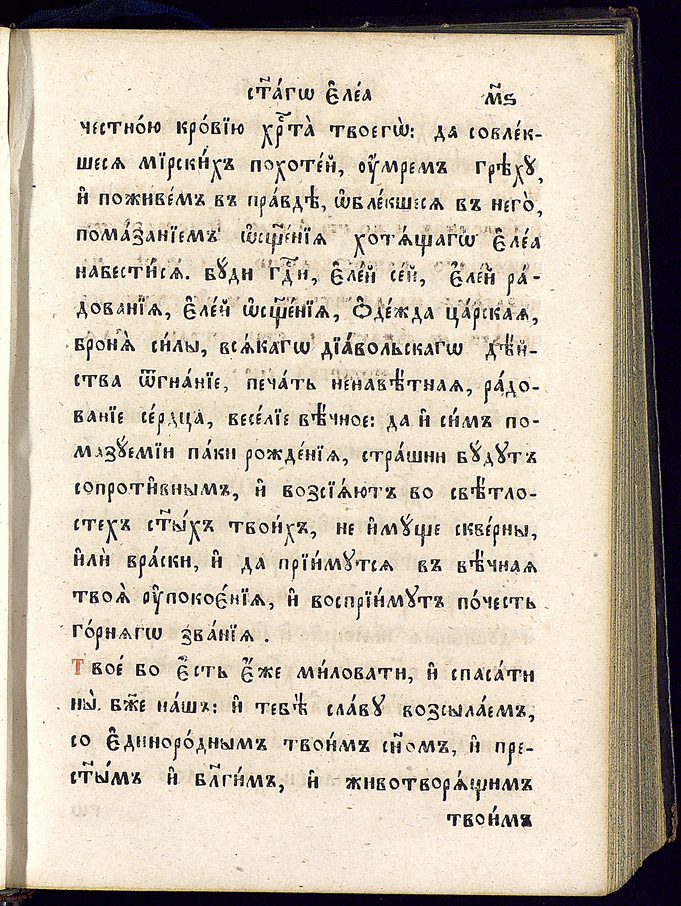 ст҃а́гѡ є҆ле́а м҃ѕ
честно́ю кро́вїю хрⷭ҇та̀ твоегѡ̀: да совле́к-
шеся мїрски́хъ похоте́й, оу҆́мремъ грѣху̀,
и҆ поживе́мъ въ пра́вдѣ, ѡ҆бле́кшеся въ него̀,
пома́занїемъ ѡ҆сщ҃е́нїя хотя́щагѡ є҆ле́а
навести́ся. бꙋ́ди гдⷭ҇и, є҆ле́й се́й, є҆ле́й ра́-
дованїя, є҆ле́й ѡ҆сщ҃е́нїя, ѻ҆де́жда ца́рская,
броня̀ си́лы, вся́кагѡ дїа́вольскагѡ дѣ́й-
ства ѿгна́нїе, печа́ть ненавѣ́тная, ра́до-
ванїе се́рдца, весе́лїе вѣ́чное: да и҆ си́мъ по-
мазꙋ́емїи па́ки рожде́нїя, стра́шни бꙋ́дꙋтъ
сопроти́внымъ, и҆ возсїя́ютъ во свѣ́тло-
стехъ ст҃ы́хъ твои́хъ, не и҆мꙋ́ще скве́рны,
и҆лѝ вра́ски, и҆ да прїи́мꙋтся въ вѣ́чная
твоя̑ оу҆покоє́нїя, и҆ воспрїи́мꙋтъ по́честь
го́рнягѡ зва́нїя.
Твое́ бо є҆́сть є҆́же ми́ловати, и҆ спаса́ти
ны̀ бж҃е на́шъ: и҆ тебѣ̀ сла́вꙋ возсыла́емъ,
со є҆диноро́днымъ твои́мъ сн҃омъ, и҆ пре-
ст҃ы́мъ и҆ бл҃ги́мъ, и҆ животворя́щимъ
твои́мъ